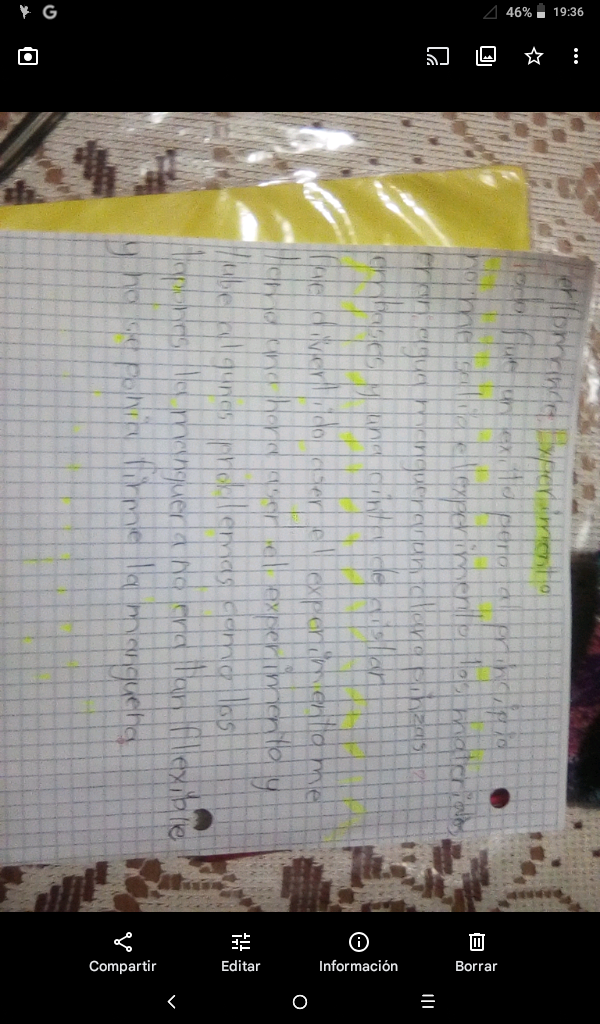 46% 19:36
Experimento
todo fue un exito pero al principio
no me salio el experimento los materiales
eran agua manguera un clavo pinzas
embases y una cinta de aislar
fue divertido aser el experimento me
tomo una hora aser el experimento y
tube algunos problemas como las
tapones la manguera no era tan flexible
y no se ponia firme la manguera
Compartir Editar Información Borrar